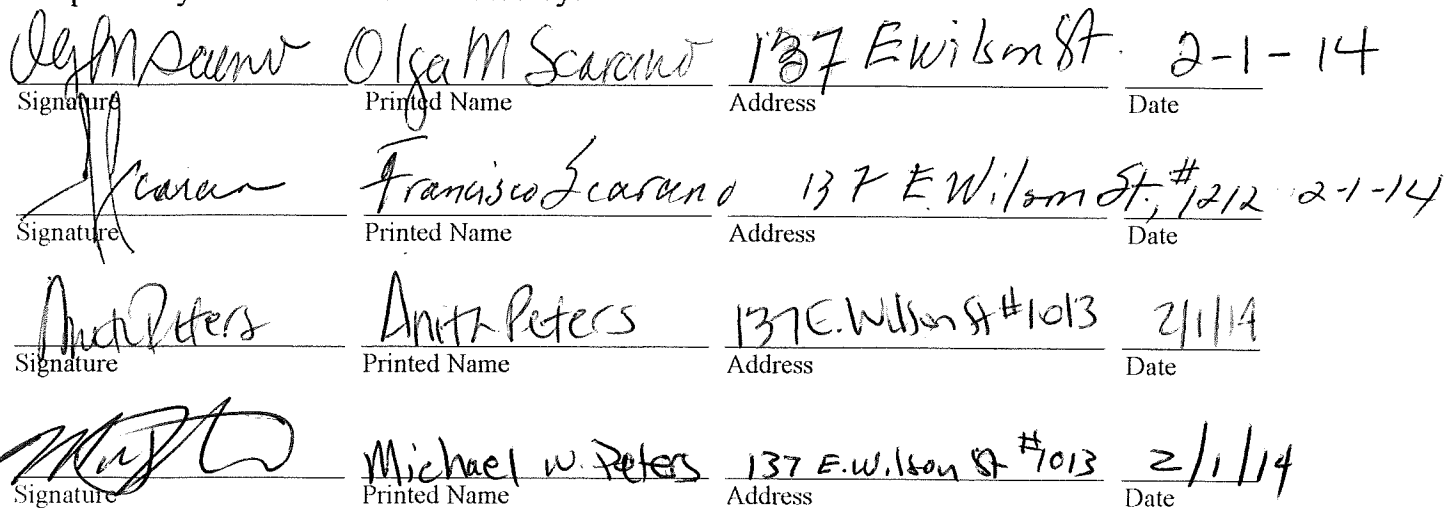 Olga M Scarano 137 E Wilson St. 2-1-14
Signature Printed Name Address Date
Scaran Francisco Scarano 137 E. Wilson St., #1212 2-1-14
Signature Printed Name Address Date
Anita Peters Anita Peters 137 E. Wilson St #1013 2/1/14
Signature Printed Name Address Date
Michael W. Peters 137 E. Wilson St #1013 2/1/14
Signature Printed Name Address Date